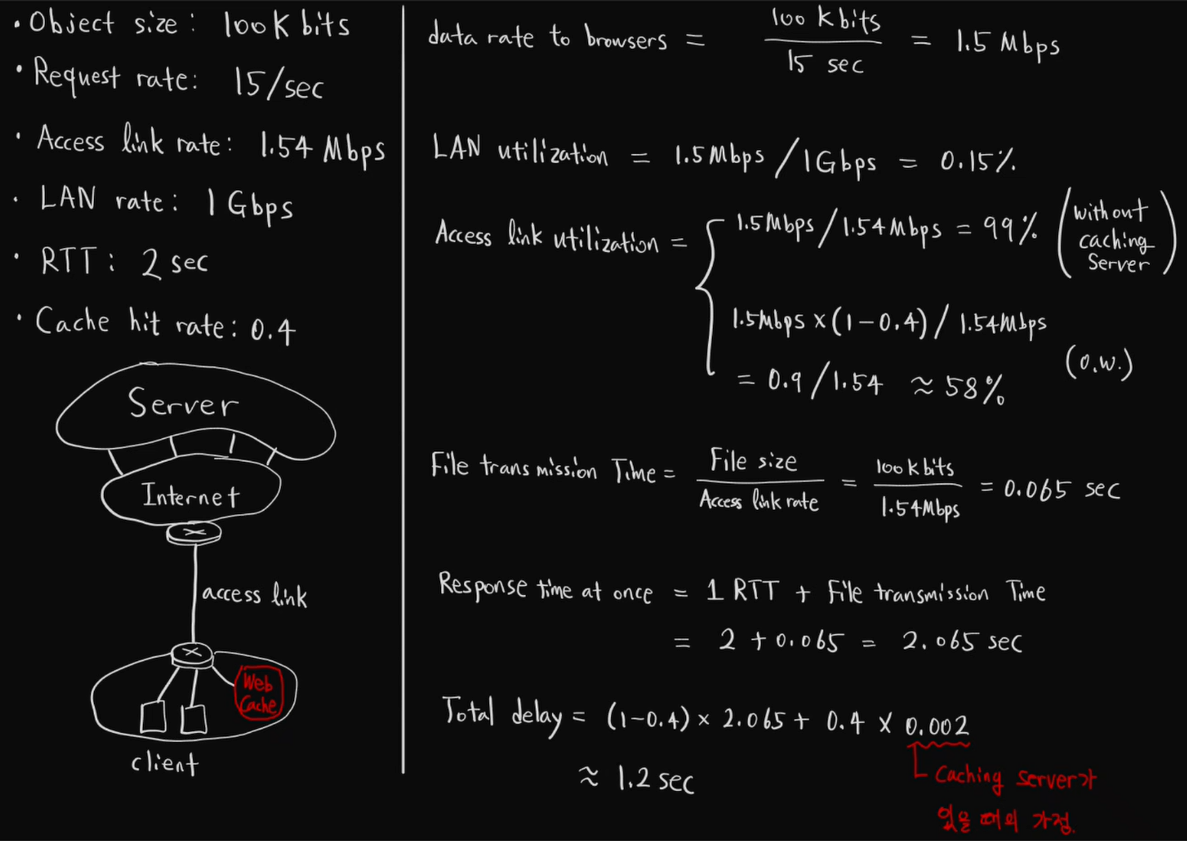 • Object size : 100 K bits
• Request rate: 15/sec
• Access link rate: 1.54 Mbps
• LAN rate: 1 Gbps
• RTT: 2 sec
• Cache hit rate: 0.4
Server
Internet
access link
Web
Cache
client
data rate to browsers = 100 k bits / 15 sec = 1.5 Mbps
LAN utilization = 1.5Mbps / 1Gbps = 0.15%
Access link utilization = { 1.5Mbps / 1.54Mbps = 99% (without caching Server)
1.5Mbps × (1-0.4) / 1.54Mbps
= 0.9 / 1.54 ≈ 58% (o.w.)
File transmission Time = File size / Access link rate = 100 k bits / 1.54Mbps = 0.065 sec
Response time at once = 1 RTT + File transmission Time
= 2 + 0.065 = 2.065 sec
Total delay = (1-0.4) × 2.065 + 0.4 × 0.002
≈ 1.2 sec
Caching server가
없을 때의 가정.